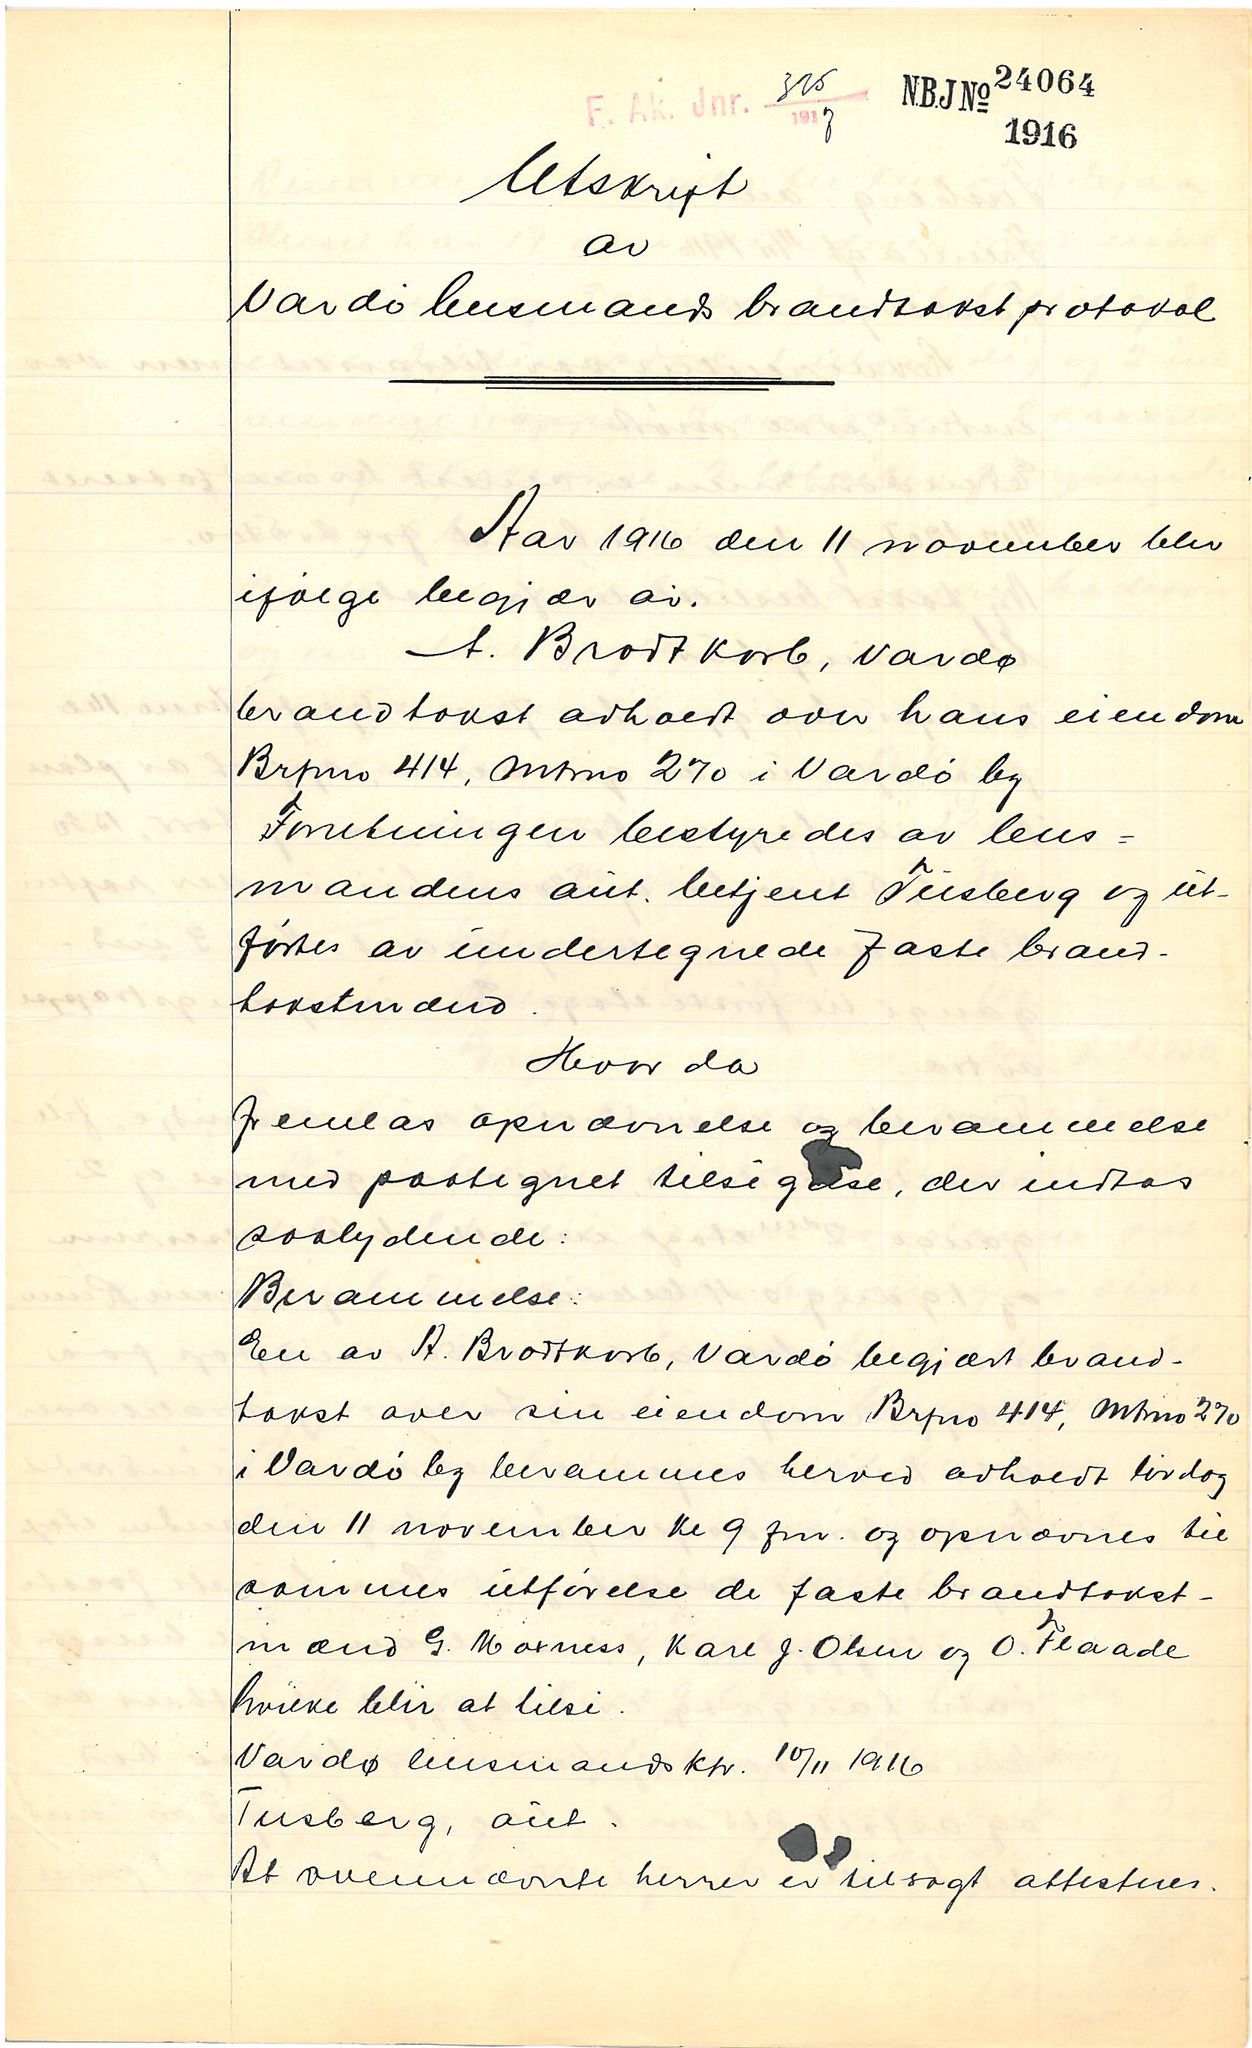 F. Ak. Jnr. 315/1917
N.B.J No 24064
1916
Utskrift
av
Vardö lensmands brandtakst protokol
Aar 1916 den 11 november blev
ifölge begjær av.
A. Brodtkorb, Vardø
brandtakst avholdt over hans eiendom
Brpno 414, Mtrno 270 i Vardö by
Forretningen bestyredes av lens=
mandens aut. betjent Tusberg og ut-
førtes av undertegnede faste brand-
takstmænd.
Hvor da
fremlas opnævnelse og berammelse
med paategnet tilsigelse, der indtas
saalydende:
Berammelse:
En av A. Brodtkorb, Vardö begjært brand-
takst over sin eiendom Brpno 414, Mtrno 270
i Vardö by berammes herved avholdt lördag
den 11 november kl 9 fm. og opnævnes til
sammes utförelse de faste brandtakst-
mænd G. Moxness, Karl J. Olsen og O. Flaade
hvilke blir at tilsi.
Vardø lensmandsktr. 10/11 1916
Tusberg, aut.
At ovennævnte herrer er tilsagt attesteres.